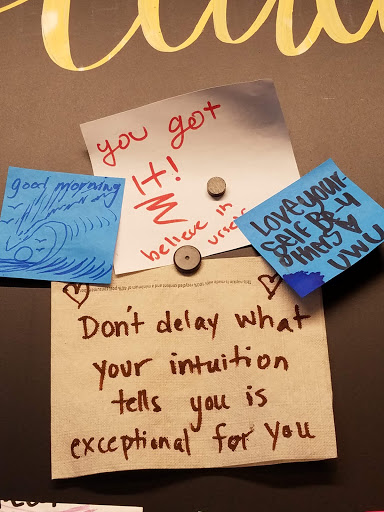 you got
it!
believe in
good morning
Love your-
self Be 4
UWU
Don't delay what
your intuition
tells you is
exceptional for you